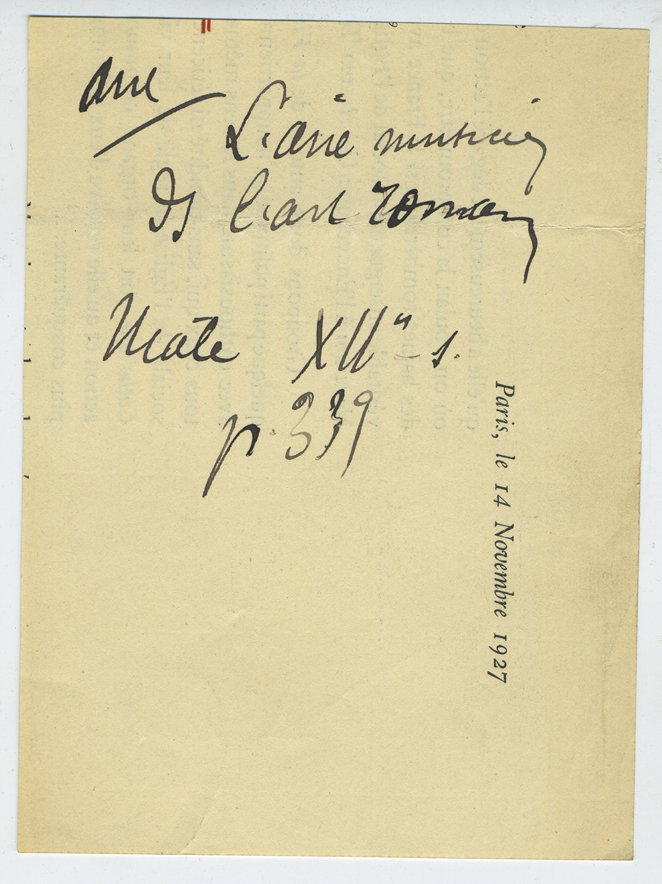 ane
L'âne musicien
ds l'art roman
Male XIIe s.
p. 339
Paris, le 14 Novembre 1927